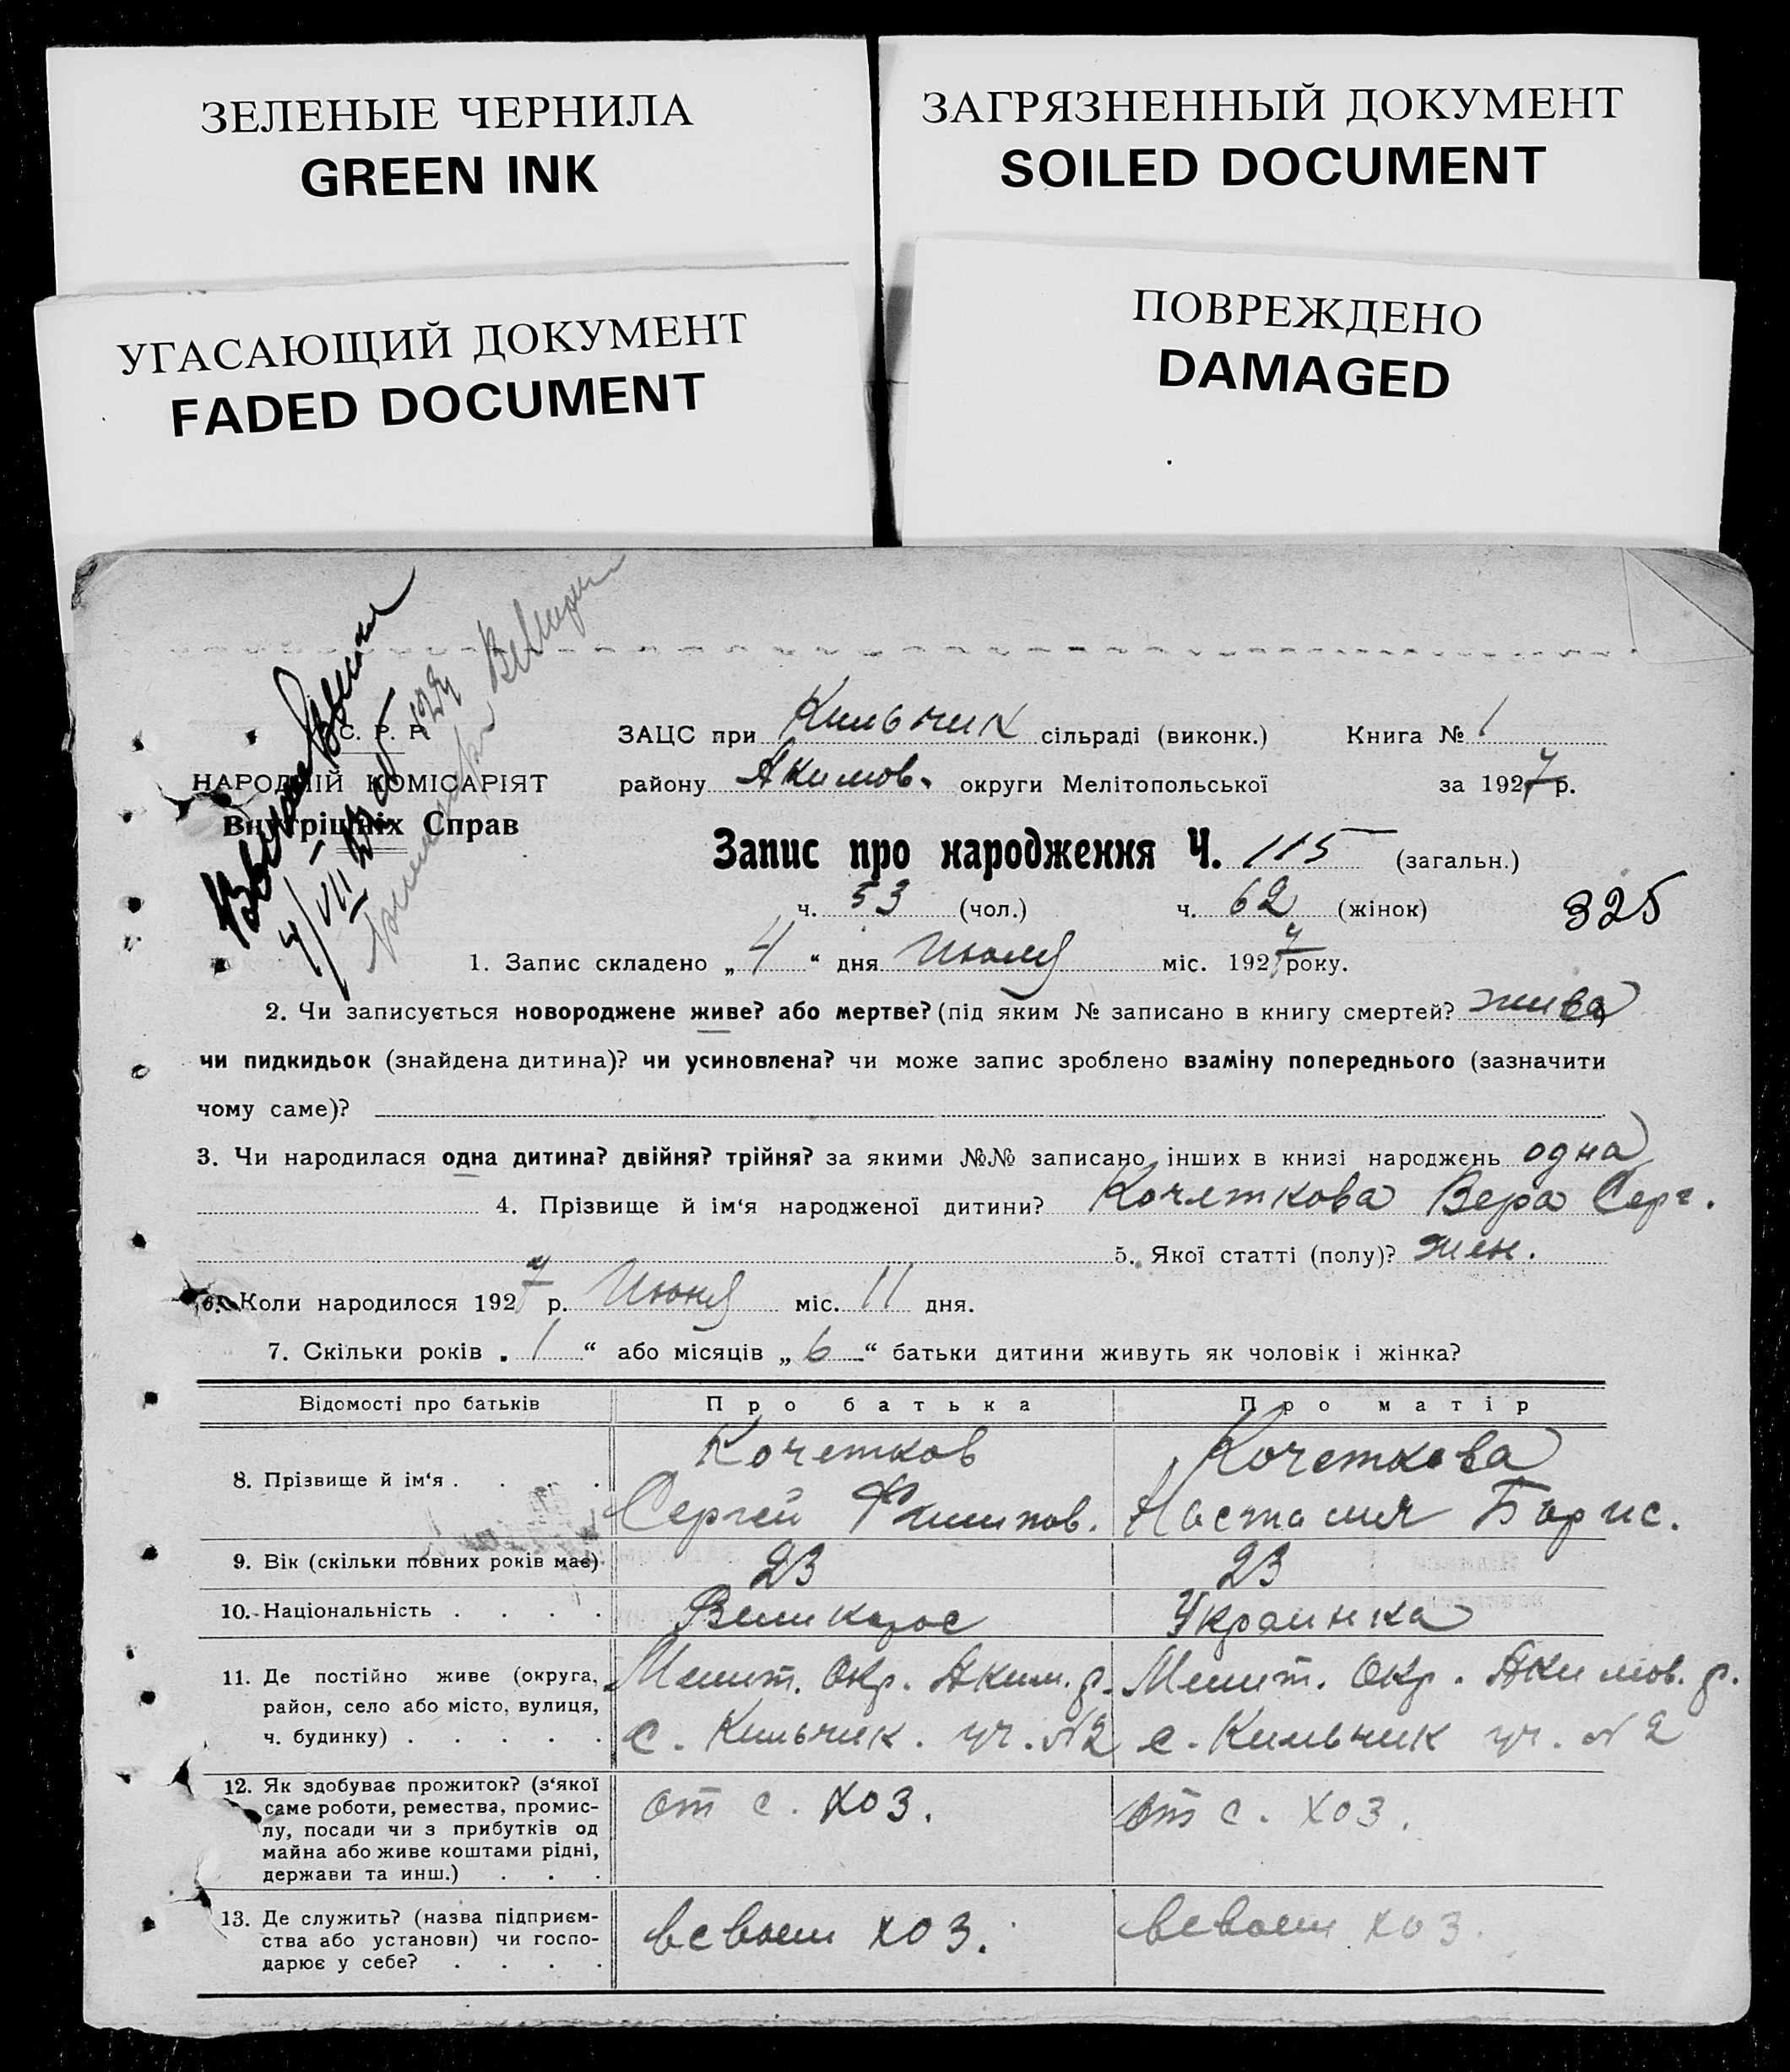 ЗЕЛЕНЫЕ ЧЕРНИЛА
GREEN INK
ЗАГРЯЗНЕННЫЙ ДОКУМЕНТ
SOILED DOCUMENT
УГАСАЮЩИЙ ДОКУМЕНТ
FADED DOCUMENT
ПОВРЕЖДЕНО
DAMAGED
С. Р. Р.
НАРОДНІЙ КОМІСАРІЯТ
Внутрішніх Справ
4/VII
ЗАЦС при Кильчик сільраді (виконк.) Книга № 1
району Акимов. округи Мелітопольської за 1924 р.
Запис про народження Ч. 115 (загальн.)
ч. 53 (чол.) ч. 62 (жінок)
325
1. Запис складено „ 4 “ дня Июля міс. 1924 року.
2. Чи записується новороджене живе? або мертве? (під яким № записано в книгу смертей? жива
чи пидкидьок (знайдена дитина)? чи усиновлена? чи може запис зроблено взаміну попереднього (зазначити
чому саме)?
3. Чи народилася одна дитина? двійня? трійня? за якими №№ записано інших в книзі народжень одна
4. Прізвище й ім‘я народженої дитини? Кочеткова Вера Серг.
5. Якої статті (полу)? жен.
6. Коли народилося 1924 р. Июня міс. 11 дня.
7. Скільки років „ 1 “ або місяців „ 6 “ батьки дитини живуть як чоловік і жінка?
Відомості про батьків Про батька Про матір
8. Прізвище й ім‘я . . . .
Кочетков
Сергей Филипов.
Кочеткова
Насталия Борис.
9. Вік (скільки повних років має) 23 23
10. Національність . . . . Великорос Украинка
11. Де постійно живе (округа,
район, село або місто, вулиця,
ч. будинку) . . . . .
Мелит. Окр. Аким. р.
с. Кильчик. уч. №2
Мелит. Окр. Акимов. р.
с. Кильчик уч. №2
12. Як здобуває прожиток? (з‘якої
саме роботи, ремества, промис-
лу, посади чи з прибутків од
майна або живе коштами рідні,
держави та инш.) . . .
от с. хоз.
от с. хоз.
13. Де служить? (назва підприєм-
ства або установи) чи госпо-
дарює у себе? . . . .
всвоем хоз.
всвоем хоз.